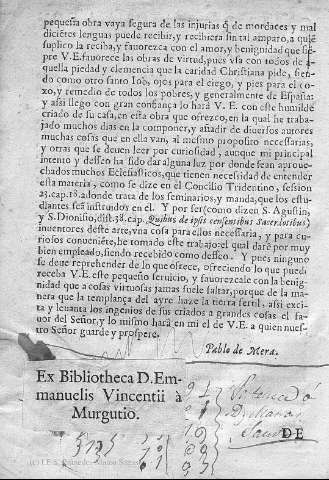 pequeña obra vaya segura de las injurias q̃ de mordaces y mal
diciẽtes lenguas puede recibir, y recibiera sin tal amparo, a quiẽ
suplico la reciba, y fauorezca con el amor, y benignidad que siẽ-
pre V.E. fauorece las obras de virtud, pues vsa con todos de a-
quella piedad y clemencia que la caridad Christiana pide, sien-
do como otro santo Iob, ojos para el ciego, y pies para el co-
xo, y remedio de todos los pobres, y generalmente de España:
y assi llego con gran confiança lo hará V. E. con este humilde
criado de su casa, en esta obra que ofrezco, en la qual he traba-
jado muchos dias en la componer, y añadir de diuersos autores
muchas cosas que en ella van, al mismo proposito necessarias,
y otras que se deuen leer por curiosidad, aunque mi principal
intento y desseo ha sido dar alguna luz por donde sean aproue-
chados muchos Eclesiasticos, que tienen necesidad de entender
esta materia, como se dize en el Concilio Tridentino, session
23. cap. 18. adonde trata de los seminarios, y manda, que los estu-
diantes seã instruidos en el. Y por ser (como dizen S. Agustin,
y S. Dionisio, dist. 38. cap. Quibus de ipsis censentibus Sacerdotibus)
inuentores deste arte, vna cosa para ellos necessaria, y para cu-
riosos conueniẽte, he tomado este trabajo: el qual daré por muy
bien empleado, siendo recebido como desseo. Y pues ninguno
se deue reprehender de lo que ofrece, ofreciendo lo que puedo
receba V.E. este pequeño seruicio, y fauorezcale con la benig-
nidad que a cosas virtuosas jamas suele faltar, porque de la ma-
nera que la templança del ayre haze la tierra fertil, assi exci-
ta y leuanta los ingenios de sus criados a grandes cosas el fa-
uor del Señor, y lo mismo hará en mi el de V.E. a quien nues-
tro Señor guarde y prospere.
Pablo de Mera.
Ex Bibliotheca D. Em-
manuelis Vincentii à
Murgutio.
DE